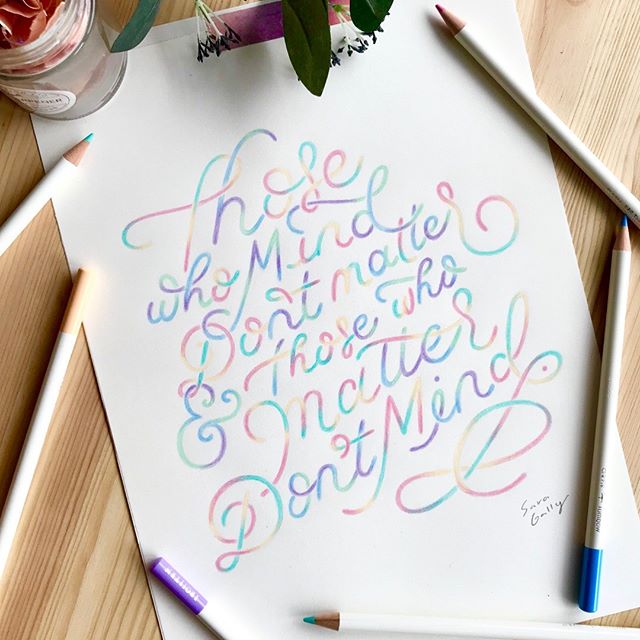 Those
who Mind
Don't matter
& Those who
Matter
Don't Mind
Sara
Gally